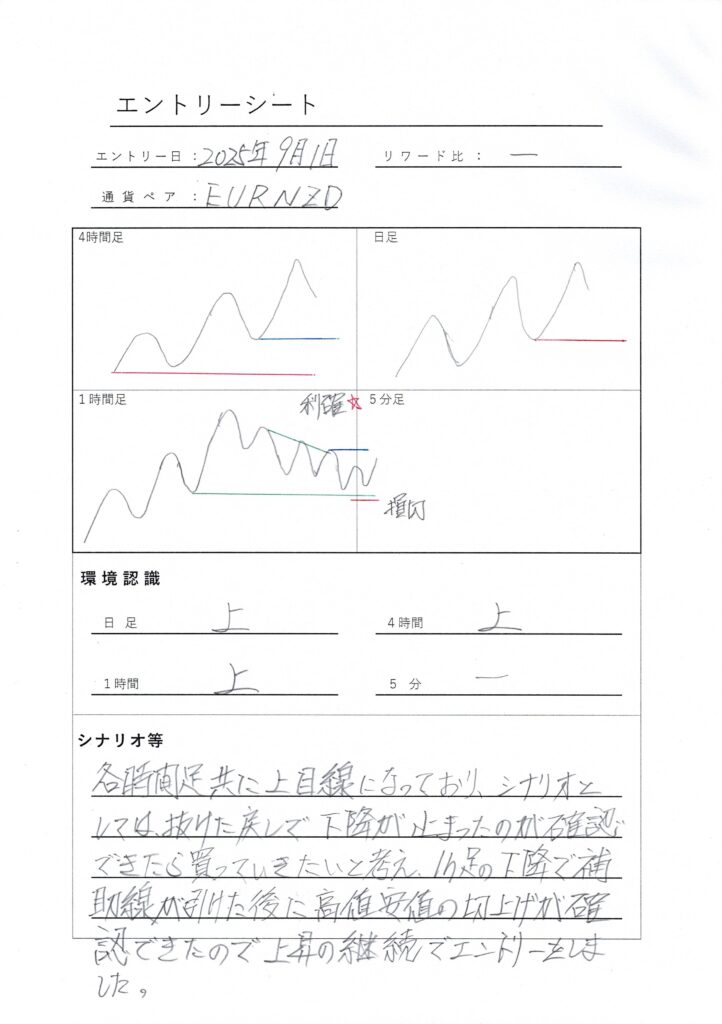 エントリーシート
エントリー日：2025年9月1日
リワード比：ー
通貨ペア：EURNZD
4時間足
日足
1時間足
利確☆
5分足
損切
環境認識
日足 上
4時間 上
1時間 上
5分 ー
シナリオ等
各時間足共に上目線になっており、シナリオと
しては、抜けた戻しで下降が止まったのが確認
できたら買っていきたいと考え、1h足の下降で補
助線が引けた後に高値安値の切上げが確
認できたので上昇の継続でエントリーをしま
した。